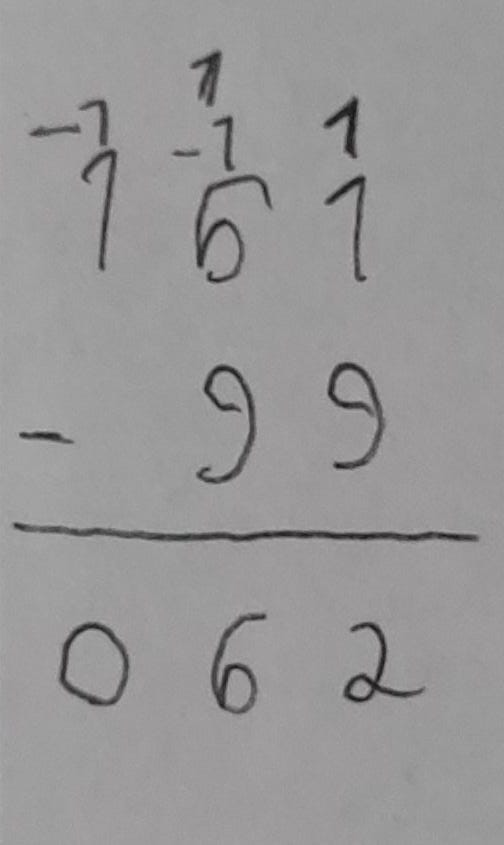 1
-1 -1 1
1 6 1
- 9 9
0 6 2